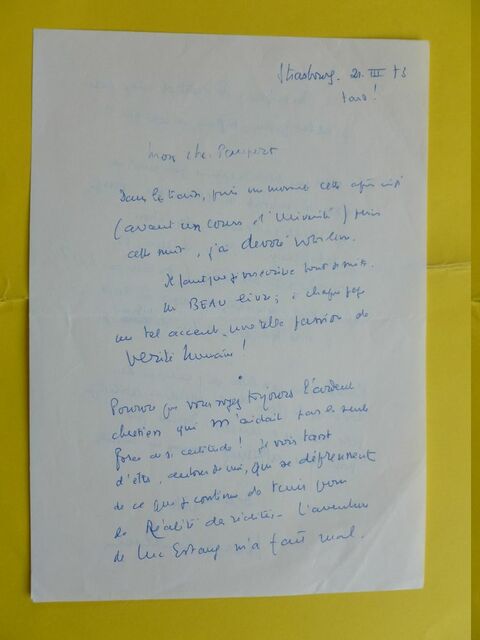 Strasbourg. 21. III 73
tard!
Mon cher
Dans le train, puis un moment cette après midi
(avant un cours d'Université) puis
cette nuit, j'ai dévoré votre livre.
Il faut que je vous écrive tout de suite.
un BEAU livre; à chaque page
un tel accent, une telle passion de
vérité humaine!
Pourvu que vous soyez toujours l'ardent
chrétien qui m'aidait par la seule
force de sa certitude! Je vois tant
d'êtres, autour de moi, qui se déprennent
de ce que je continue de tenir pour
la Réalité des réalités. L'aventure
de Luc Estang m'a fait mal.